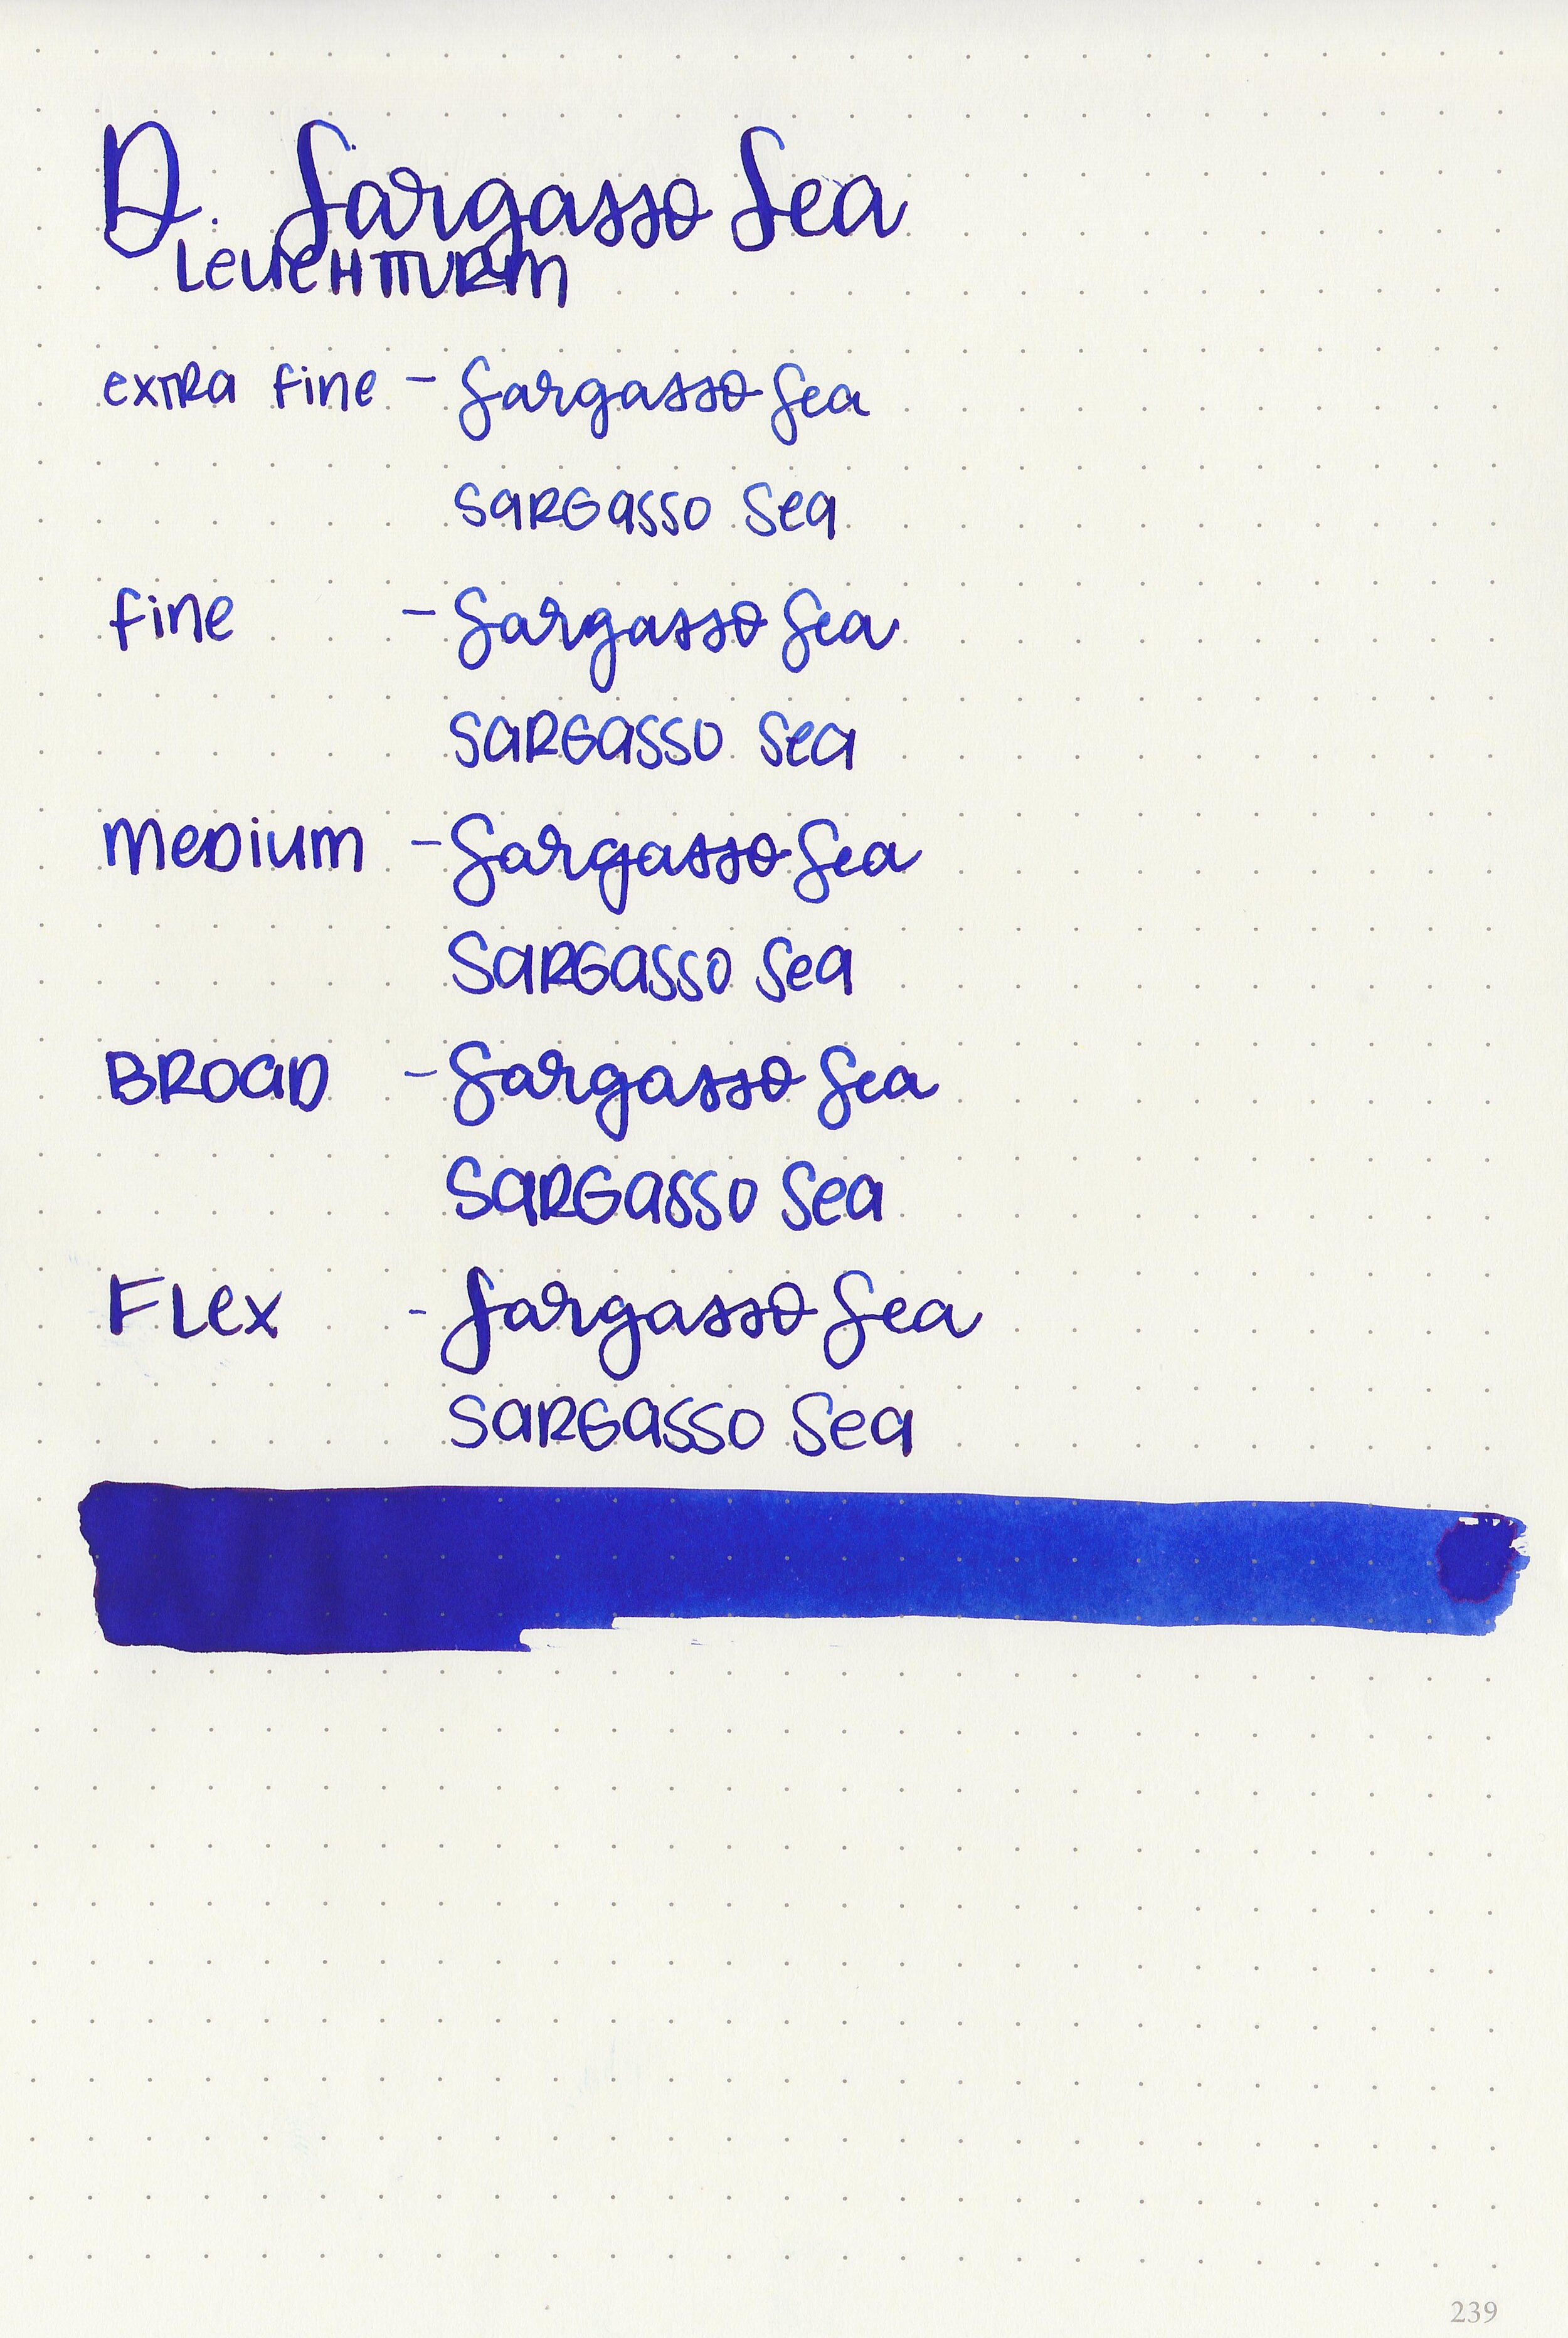 D. Sargasso Sea
LeuCHTTURM
exTRa fine - Sargasso Sea
SaRGasso Sea
fine - Sargasso Sea
SaRGasso Sea
MeDium - Sargasso Sea
SaRGasso Sea
BROaD - Sargasso Sea
SaRGasso Sea
FLex - Sargasso Sea
SaRGasso Sea
239